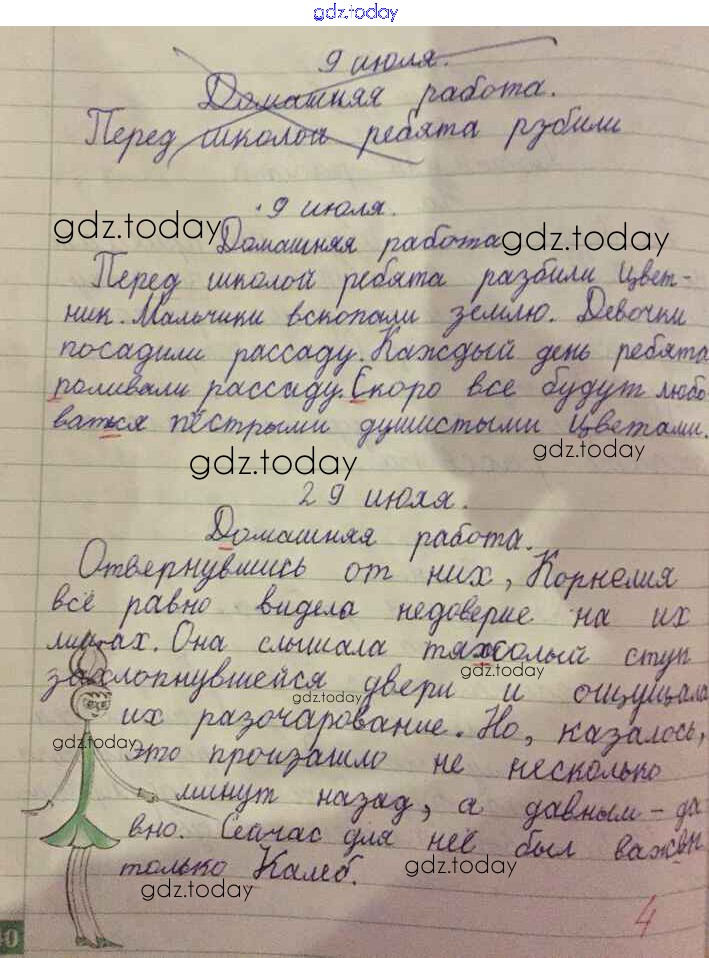 gdz.today
9 июля.
Домашняя работа.
Перед школой ребята рзбили
9 июля.
gdz.today gdz.today
Домашняя работа
Перед школой ребята разбили цвет-
ник. Мальчики вскопали землю. Девочки
посадили рассаду. Каждый день ребята
поливали рассаду. Скоро все будут любо
ваться пёстрыми душистыми цветами.
gdz.today gdz.today
29 июля.
Домашняя работа.
Отвернувшись от них, Корнелия
всё равно видела недоверие на их
лицах. Она слышала тяжолый стук
gdz.today
захлопнувшейся двери и ощущала
gdz.today
их разочарование. Но, казалось,
gdz.today
это произашло не несколько
минут назад, а давным-да
вно. Сейчас для неё был важен
только Калеб.
gdz.today gdz.today
4